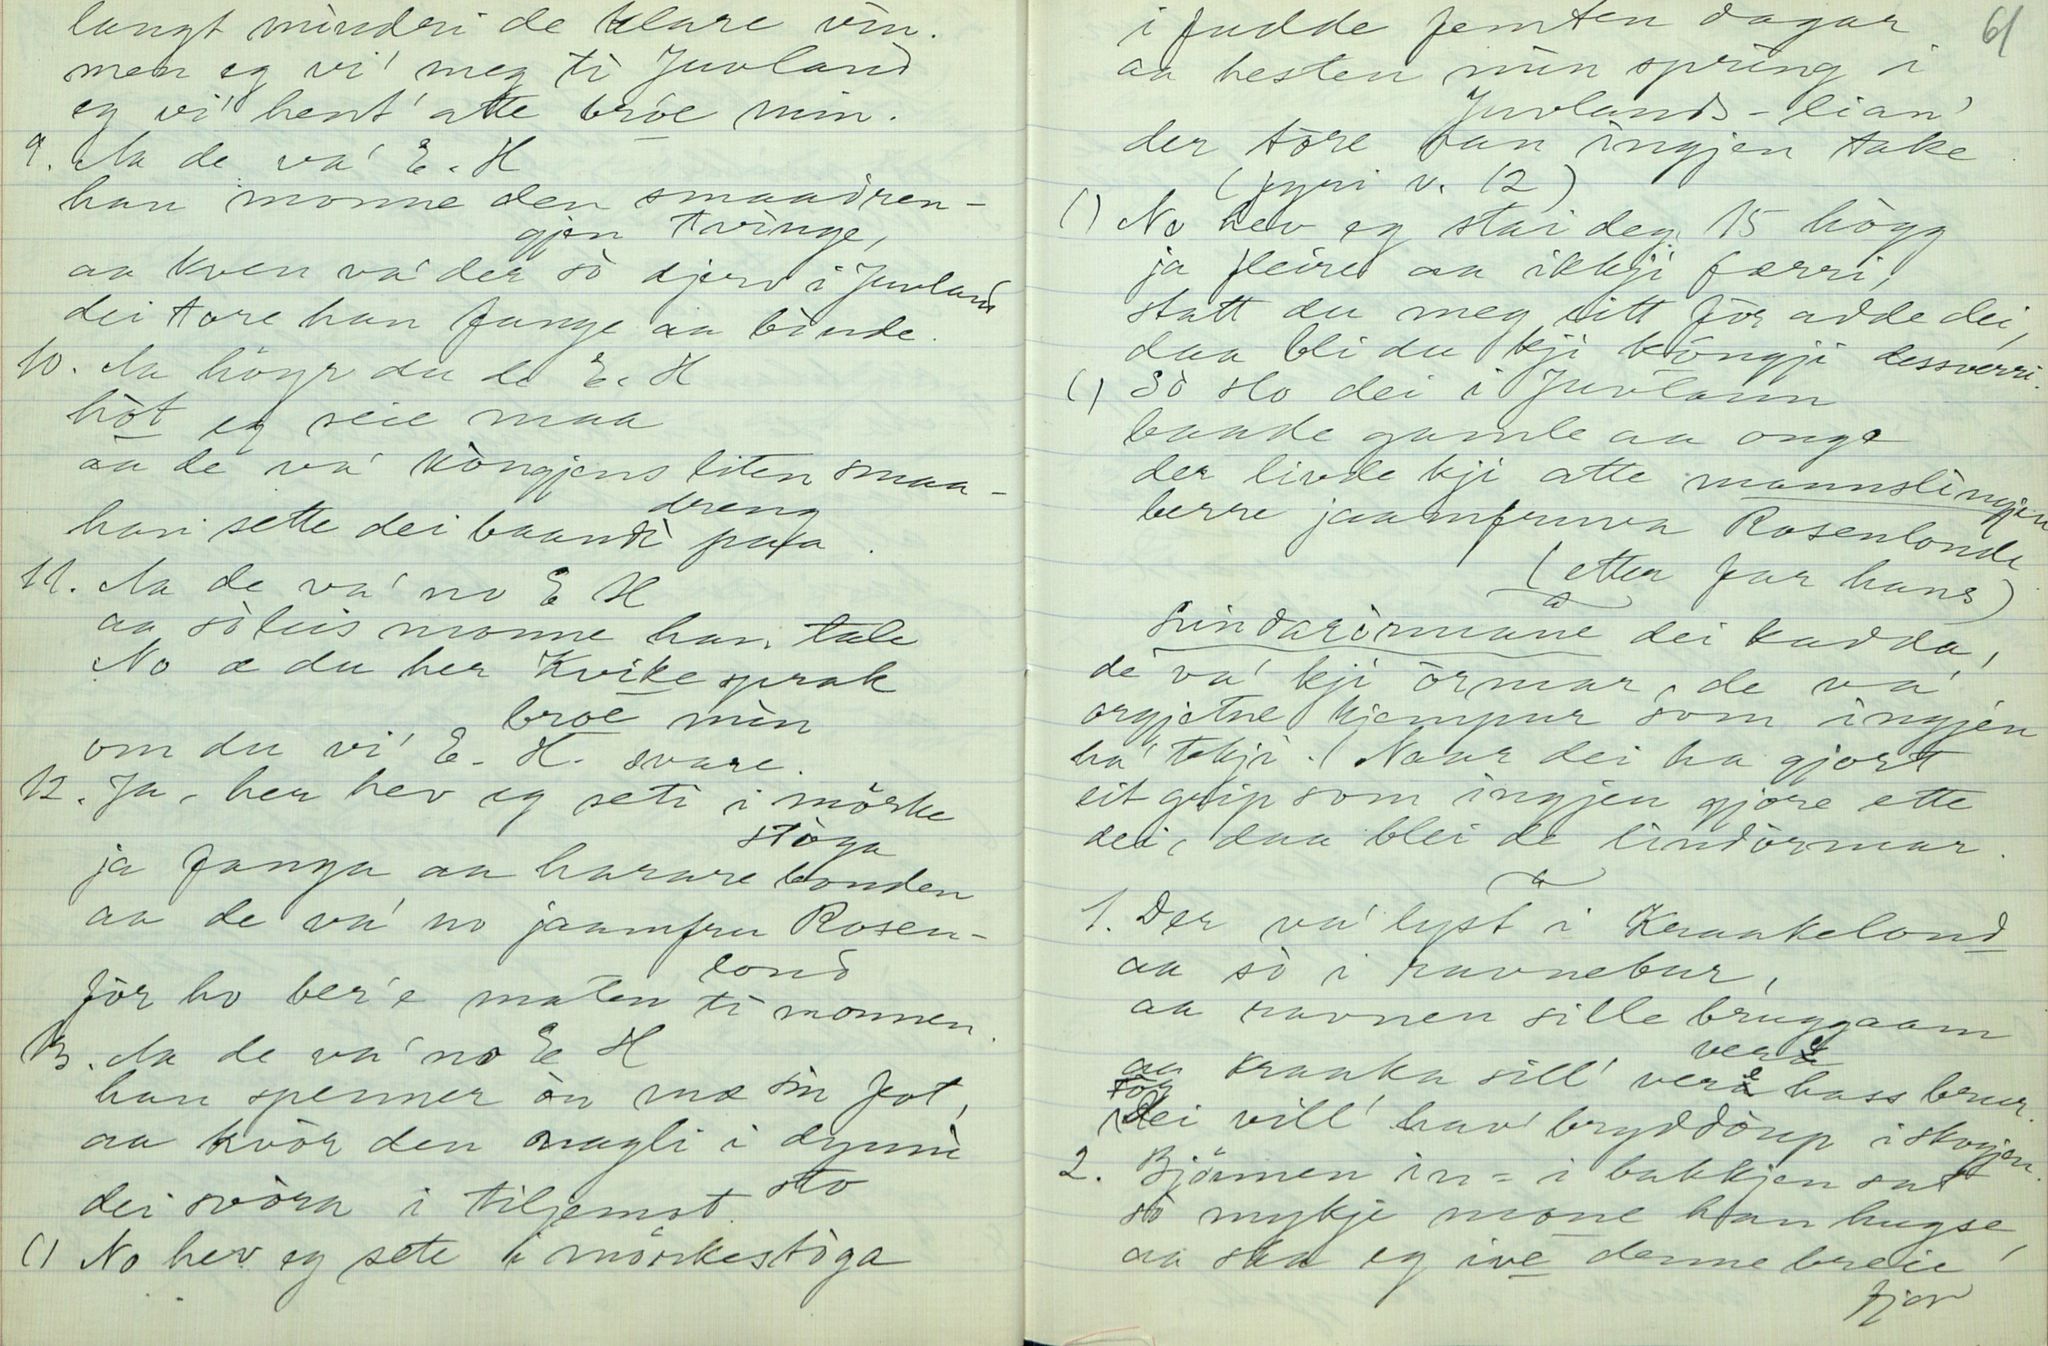 langt mindri de klare vin.
men eg vi' meg ti Juvland
eg vi' hent' atte broe min.
9. Aa de va' E. H
han monne den smaadren-
gjen tvinge,
aa kven va' der so djerv i Juvland
dei tore han fange aa binde.
10. Aa höyr du de E. H
hot eg seie maa
aa de va' kongjens liten smaa-
dreng
han sette dei baandi paa.
11. Aa de va' no E H
aa soleis monne han tale
No æ du her Kvikesprak
broe min
om du vi' E. H. svare.
12. Ja, her hev eg seti i mörke
stoga
ja fanga aa harare bonden
aa de va' no jaamfru Rosen-
lond
för ho ber'e maten ti monnen.
13. Aa de va' no E H
han spenner on mæ sin fot,
aa kvör den nagli i dynni
sto
dei svöra i tiljemot.
() No hev eg sete i mörkestoga
61
i fudde femten dagar
aa hesten min spring i
Juvlands-lian'
der tore han ingjen take.
(fyri v. 12)
() No hev eg stai deg 15 högg
ja fleire aa ikkji færri,
statt du meg eitt för adde dei,
daa bli du kji kongji dessverri.
() So slo dei i Juvlann
baade gamle aa onge
der livde kji atte mannslingjen
berre jaamfruva Rosenlonde
(etter far hans)
Lindarormane dei kadda,
de va' kji ormar, de va'
orgjetne kjempur som ingjen
ha' tekji. (Naar dei ha gjort
eit grip som ingjen gjore ette
dei, daa blei de lindormar.
1. Der va' lyst i Kraakelond
aa so i ravnebur,
aa ravnen sille bruggaam
vere
aa kraaka sill' vere hass brur.
för
Dei vill' hav' bryddöup i skogjen.
2. Björnen in-i bakkjen sat
so mykje mone han hugse,
aa saa eg ive denne breie
fjor